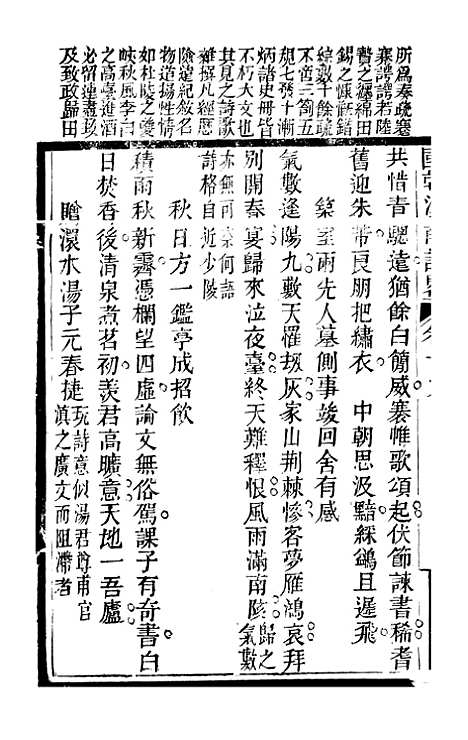 所爲奉疏蹇
蹇諤諤若陸
贄之纏綿田
錫之慷慨諸
綜數千餘疏
不啻三箇五
規七發十漸
炳諸史冊皆
不朽大文也
其見之詩歌
雜撰凡經歷
險遠紀敘名
物造揚性情
如杜陵之夔
峽秋風李白
之高臺進酒
必留連盡玅
及致政歸田
國朝滇南詩畧
共惜青驄遠猶餘白簡威褰帷歌頌起伏節諫書稀耆
舊迎朱帶良朋把繡衣 中朝思汲黯綵鷁且遲飛
築室兩先人墓側事竣回舍有感
氣數逢陽九數天罹刼灰家山荆棘慘客夢雁鴻哀拜
別開春宴歸來泣夜臺終天難釋恨風雨滿南陔歸之氣數
亦無可奈何語
詩格自近少陵
秋日方一鑑亭成招飲
積雨秋新霽憑欄望四虛論文無俗駕課子有奇書白
日焚香後清泉煮茗初羨君高曠意天地一吾廬
贈澴水湯子元春捷玩詩意似湯君尊甫官
滇之廣文而阻滯者